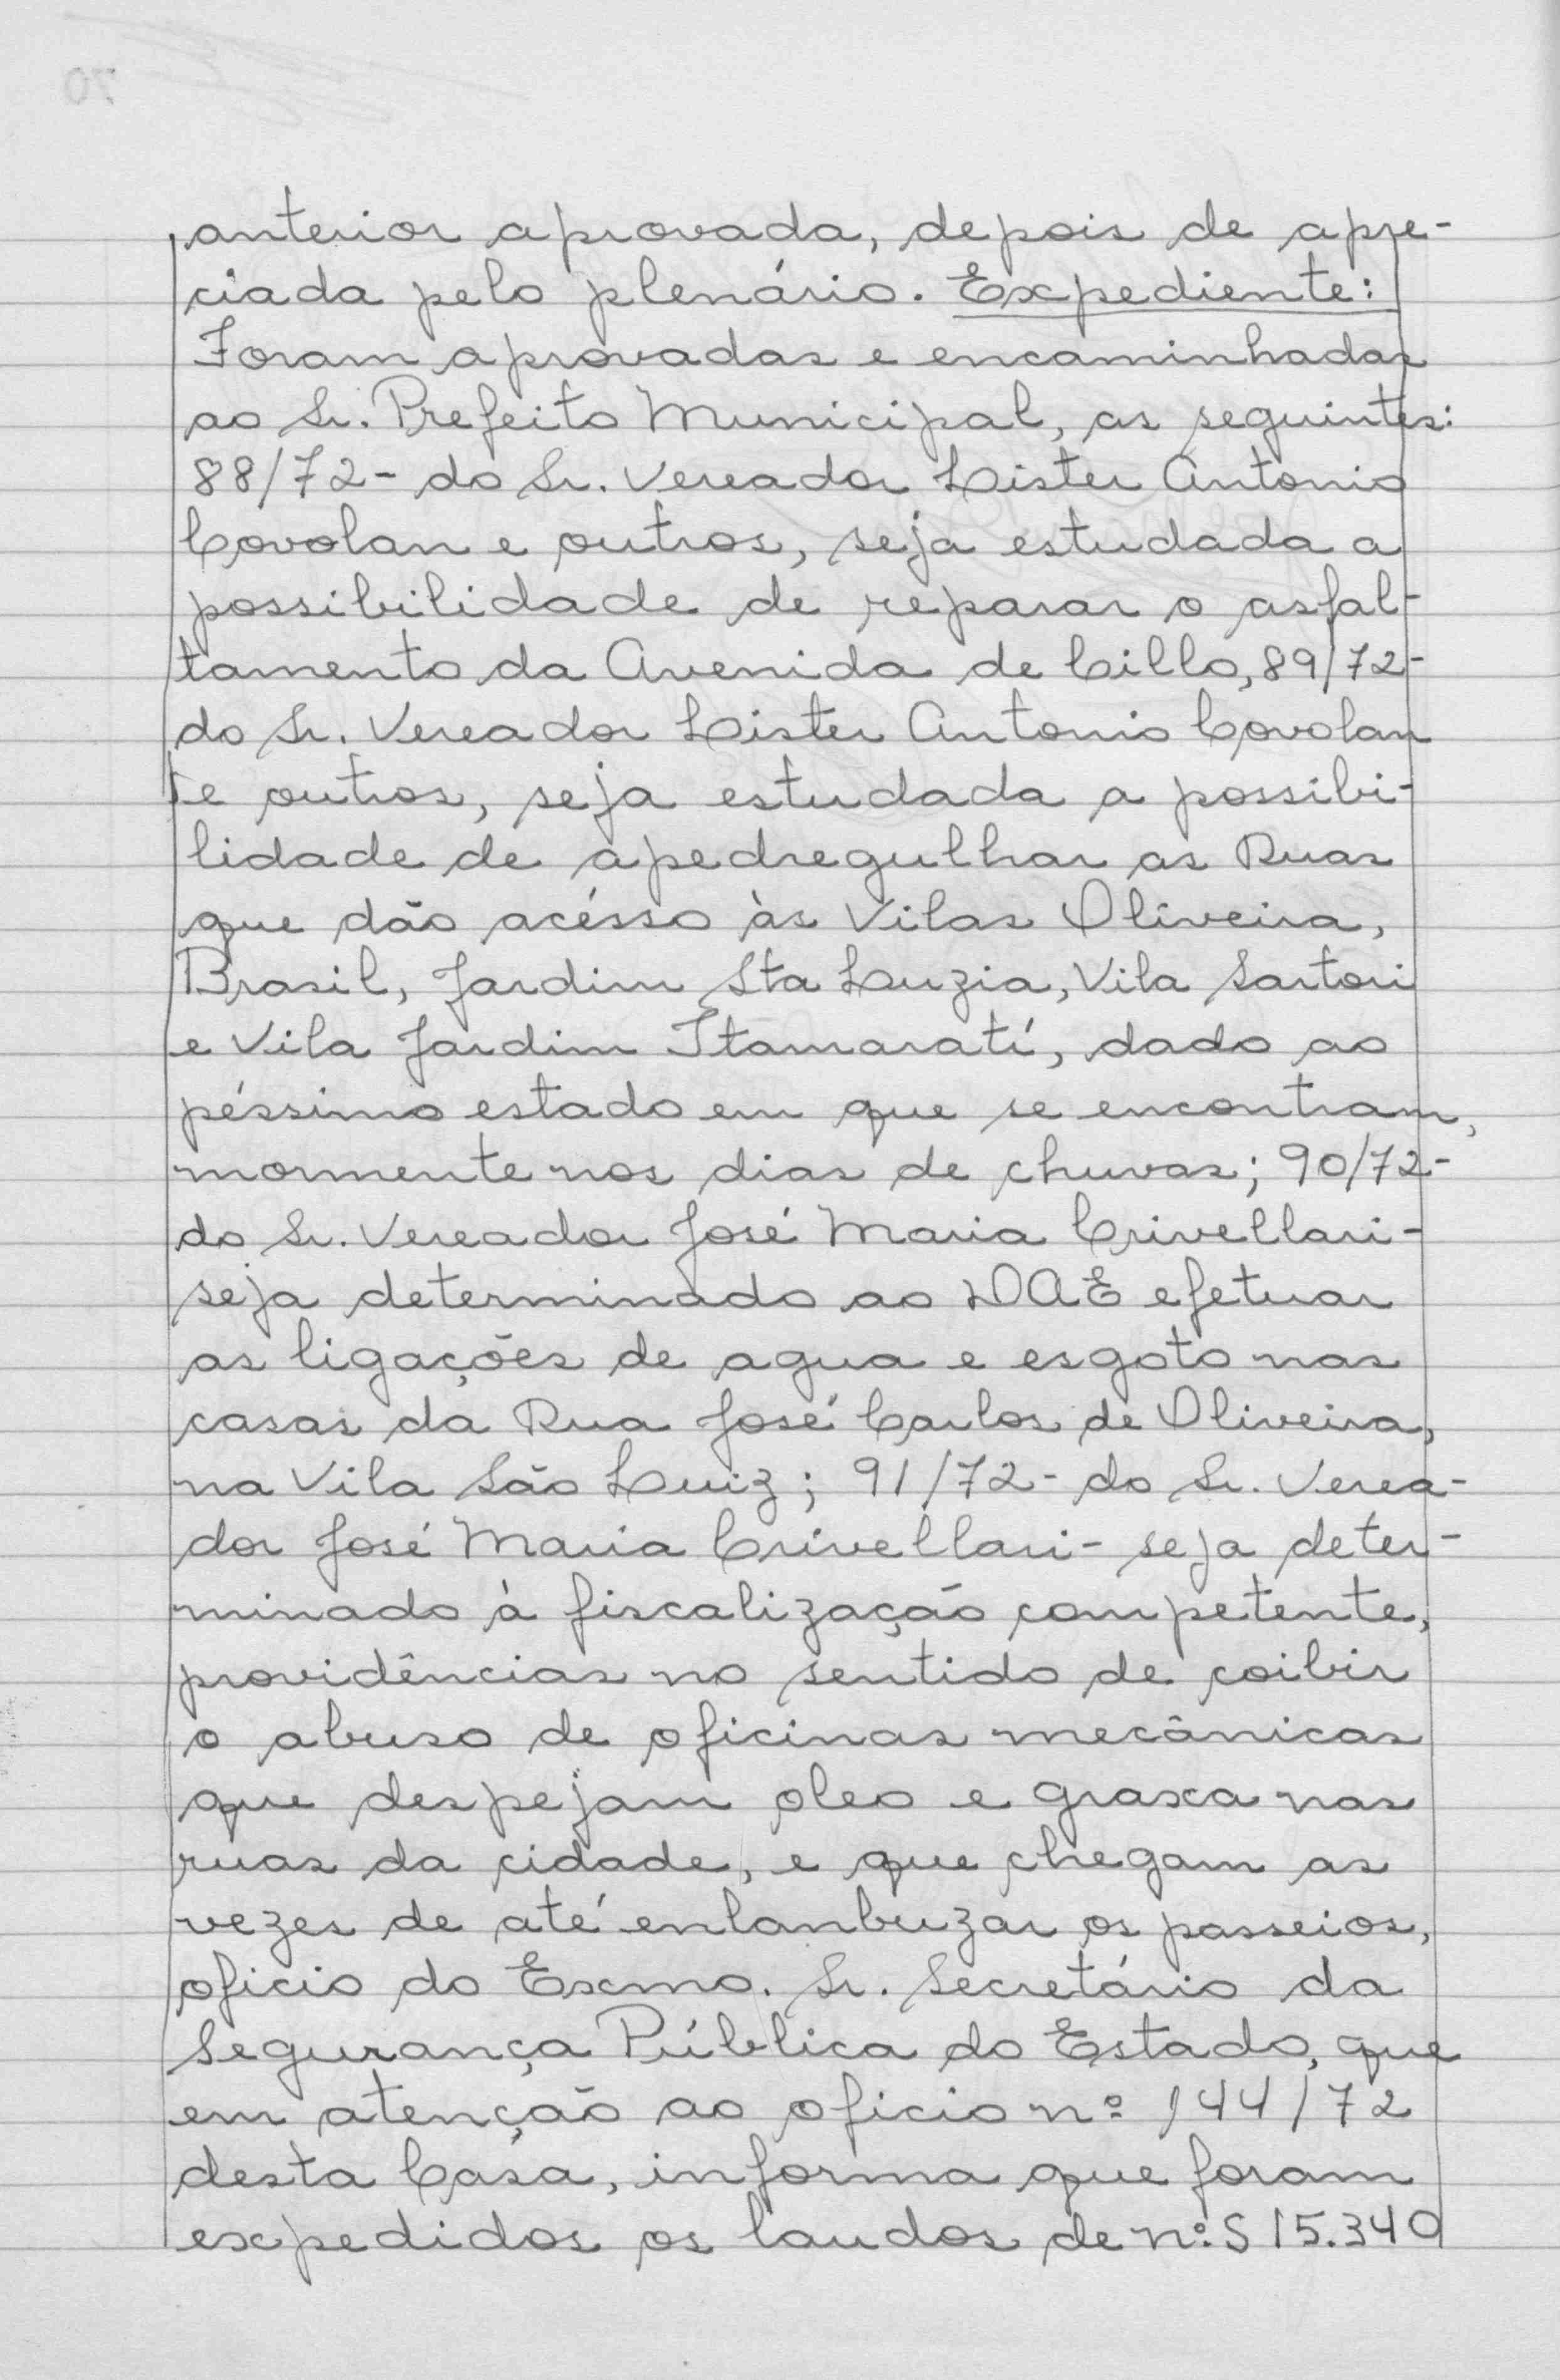 anterior aprovada, depois de apre-
ciada pelo plenário. Expediente:
Foram aprovadas e encaminhadas
ao Sr. Prefeito Municipal, as seguintes:
88/72- do Sr. Vereador Lister Antonio
Covolan e outros, seja estudada a
possibilidade de reparar o asfal-
tamento da Avenida de Cillo, 89/72-
do Sr. Vereador Lister Antonio Covolan
e outros, seja estudada a possibi-
lidade de apedregulhar as Ruas
que dão acésso às Vilas Oliveira,
Brasil, Jardim Sta Luzia, Vila Sartori
e Vila Jardim Itamaratí, dado ao
péssimo estado em que se encontram,
mormente nos dias de chuvas; 90/72-
do Sr. Vereador José Maria Crivellari-
seja determinado ao DAE efetuar
as ligações de agua e esgoto nas
casas da Rua José Carlos de Oliveira,
na Vila São Luiz; 91/72- do Sr. Verea-
dor José Maria Crivellari- seja deter-
minado à fiscalização competente,
providências no sentido de coibir
o abuso de oficinas mecânicas
que despejam oleo e graxa nas
ruas da cidade, e que chegam as
vezes de até enlambuzar os passeios,
oficio do Excmo. Sr. Secretário da
Segurança Pública do Estado, que
em atenção ao oficio nº 144/72
desta Casa, informa que foram
expedidos os laudos de nº:S 15.340
70